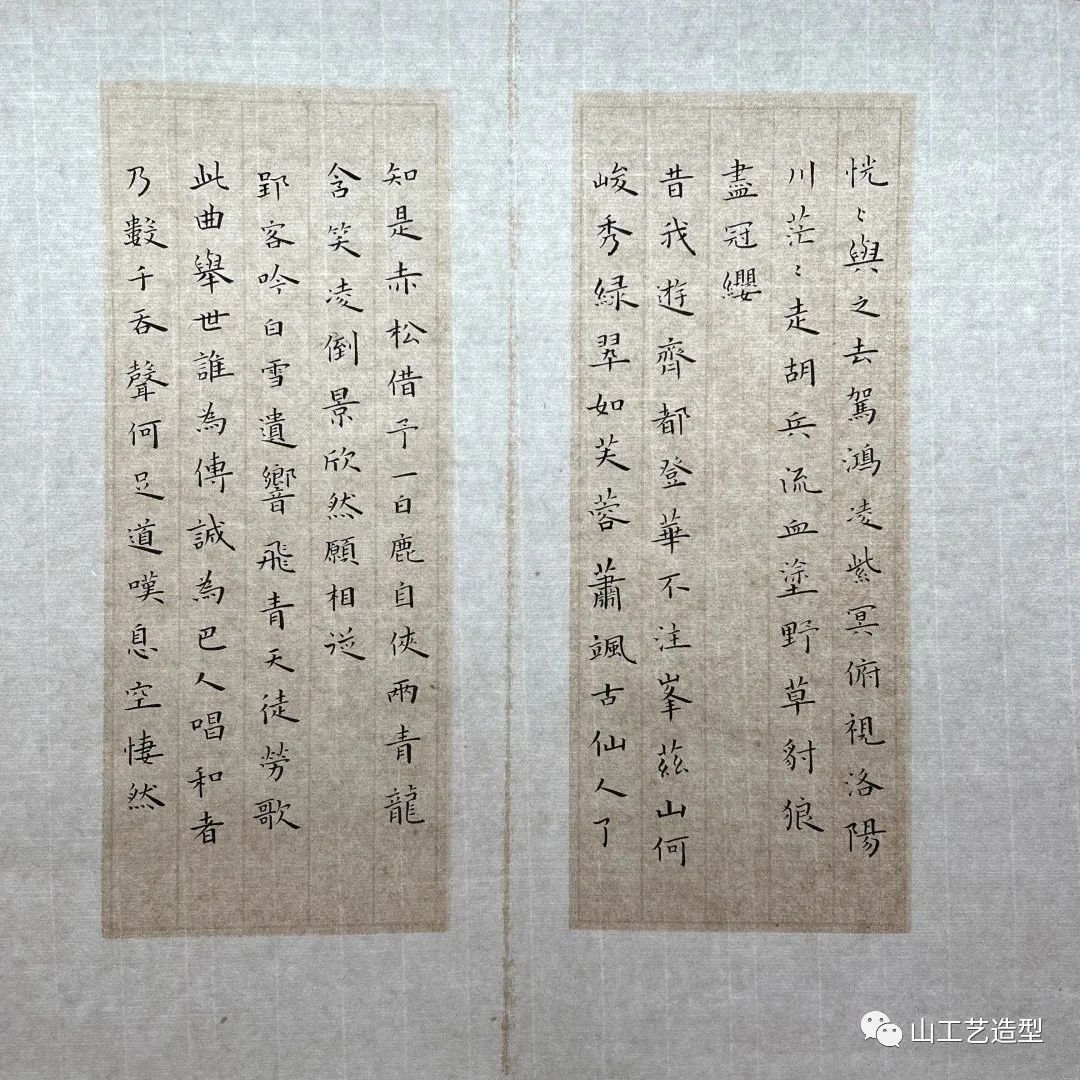 恍〻與之去駕鴻凌紫冥俯視洛陽
川茫〻走胡兵流血塗野草豺狼
盡冠纓
昔我遊齊都登華不注峯茲山何
峻秀綠翠如芙蓉蕭颯古仙人了
知是赤松借予一白鹿自俠兩青龍
含笑凌倒景欣然願相從
郢客吟白雪遺響飛青天徒勞歌
此曲舉世誰為傳誠為巴人唱和者
乃數千吞聲何足道嘆息空悽然
山工艺造型